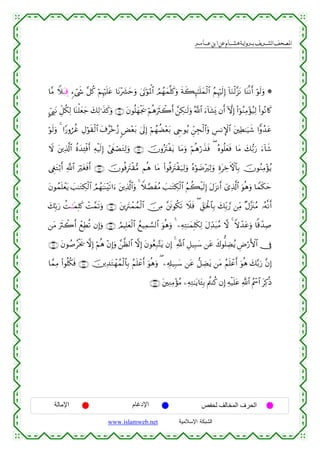 المصحف الشريف برواية هشام عن ابن عامر
۞ وَلَوْ أَنَّنَا نَزَّلْنَا إِلَيْهِمُ الْمَلَٰئِكَةَ وَكَلَّمَهُمُ الْمَوْتَىٰ وَحَشَرْنَا عَلَيْهِمْ كُلَّ شَيْءٍ قِبَلًا مَّا
كَانُوا لِيُؤْمِنُوا إِلَّا أَن يَشَاءَ اللَّهُ وَلَٰكِنَّ أَكْثَرَهُمْ يَجْهَلُونَ ﴿١١١﴾ وَكَذَٰلِكَ جَعَلْنَا لِكُلِّ نَبِيٍّ
عَدُوًّا شَيَاطِينَ الْإِنسِ وَالْجِنِّ يُوحِي بَعْضُهُمْ إِلَىٰ بَعْضٍ زُخْرُفَ الْقَوْلِ غُرُورًا ۚ وَلَوْ
شَاءَ رَبُّكَ مَا فَعَلُوهُ ۖ فَذَرْهُمْ وَمَا يَفْتَرُونَ ﴿١١٢﴾ وَلِتَصْغَىٰ إِلَيْهِ أَفْئِدَةُ الَّذِينَ لَا
يُؤْمِنُونَ بِالْآخِرَةِ وَلِيَرْضَوْهُ وَلِيَقْتَرِفُوا مَا هُم مُّقْتَرِفُونَ ﴿١١٣﴾ أَفَغَيْرَ اللَّهِ أَبْتَغِي
حَكَمًا وَهُوَ الَّذِي أَنزَلَ إِلَيْكُمُ الْكِتَٰبَ مُفَصَّلًا ۚ وَالَّذِينَ ءَاتَيْنَٰهُمُ الْكِتَٰبَ يَعْلَمُونَ
أَنَّهُ مُنَزَّلٌ مِّن رَّبِّكَ بِالْحَقِّ ۖ فَلَا تَكُونَنَّ مِنَ الْمُمْتَرِينَ ﴿١١٤﴾ وَتَمَّتْ كَلِمَٰتُ رَبِّكَ
صِدْقًا وَعَدْلًا ۚ لَّا مُبَدِّلَ لِكَلِمَٰتِهِ ۚ وَهُوَ السَّمِيعُ الْعَلِيمُ ﴿١١٥﴾ وَإِن تُطِعْ أَكْثَرَ مَن
فِي الْأَرْضِ يُضِلُّوكَ عَن سَبِيلِ اللَّهِ ۚ إِن يَتَّبِعُونَ إِلَّا الظَّنَّ وَإِنْ هُمْ إِلَّا يَخْرُصُونَ ﴿١١٦﴾
إِنَّ رَبَّكَ هُوَ أَعْلَمُ مَن يَضِلُّ عَن سَبِيلِهِ ۖ وَهُوَ أَعْلَمُ بِالْمُهْتَدِينَ ﴿١١٧﴾ فَكُلُوا مِمَّا
ذُكِرَ اسْمُ اللَّهِ عَلَيْهِ إِن كُنتُم بِـَٔايَٰتِهِ مُؤْمِنِينَ ﴿١١٨﴾
الحرف المخالف لحفص الإدغام الإمالة
www.islamweb.net الشبكة الإسلامية